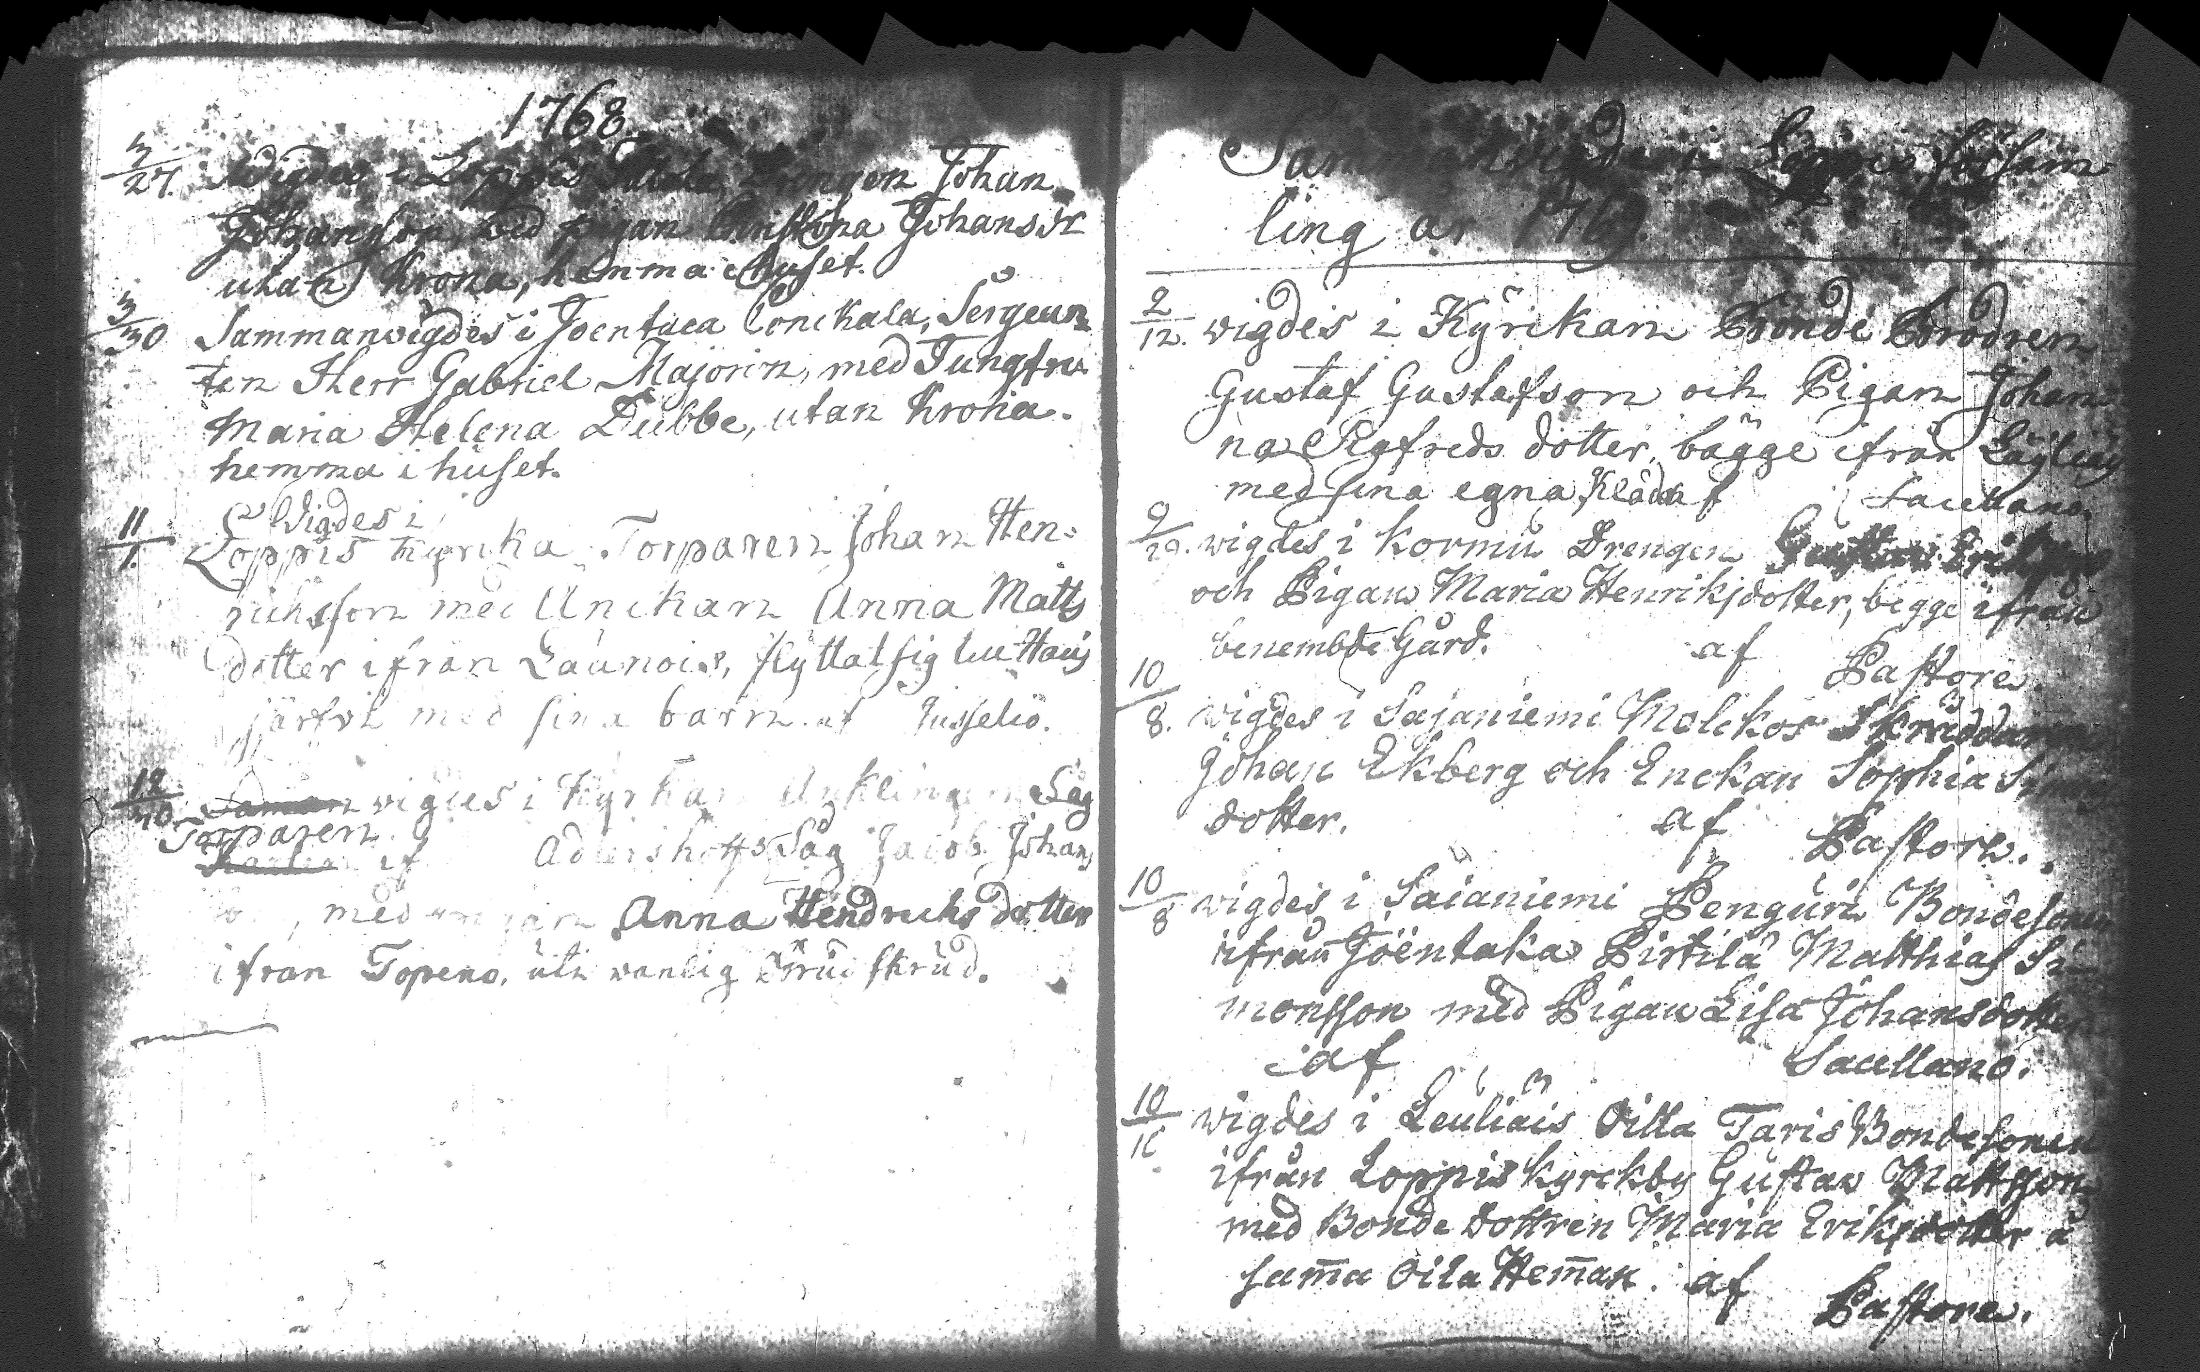 1768
3/27. wigdes i Loppis Drengen Johan
Johansson, med pigan Christina Johansdr
utan Krona, hemma i huset.
3/30 Sammanwigdes i Joentaca Conikala, Sergean
ten Herr Gabriel Majorin, med Jungfru
Maria Helena Dubbe, utan Krona.
hemma i huset.
Wigdes i
11/1. Loppis Kyrcka Torparen Johan Hen-
richsson med Änckan Anna Matts
dotter ifrån Launois, flyttat sig till Haus
järfvi med sina barn. af
12/30 Saman wigdes i Kyrkan
Torparen
Adlershoffs Såg Jacob Johans
med Anna Hendrichs dotter
ifran Topeno, uti vanlig Brud skrud.
Sammanwigde i Loppis försam-
ling år 1769.
2/12. wigdes i Kyrckan Bonde Brodren
Gustaf Gustafson och Pigan Johan
na Sigfreds dotter, bägge ifrån Läyliäis
med sina egna Kläder af Sacellano.
9/29. wigdes i Kormu Drengen
och Pigan Maria Henriksdotter, begge ifrån
benembde Gård. af Pastore.
10/8. wigdes i Sajaniemi Molckos Skräddaren
Johan Ekberg och Enckan Sophia Simons
dotter. af Pastore.
10/8 wigdes i Saianiemi Penguri Bondesonen
ifrån Joentaka Pirtilä Matthias Si-
monsson med Pigan Lisa Johansdotter
af Sacellano.
10/16 wigdes i Leuliäis Oitta Taris Bondesonen
ifrån Loppis Kyrckby Gustav Mattsson
med Bonde dottren Maria Eriksdotter å
sam̄a Oila Hem̄an. af Pastore.